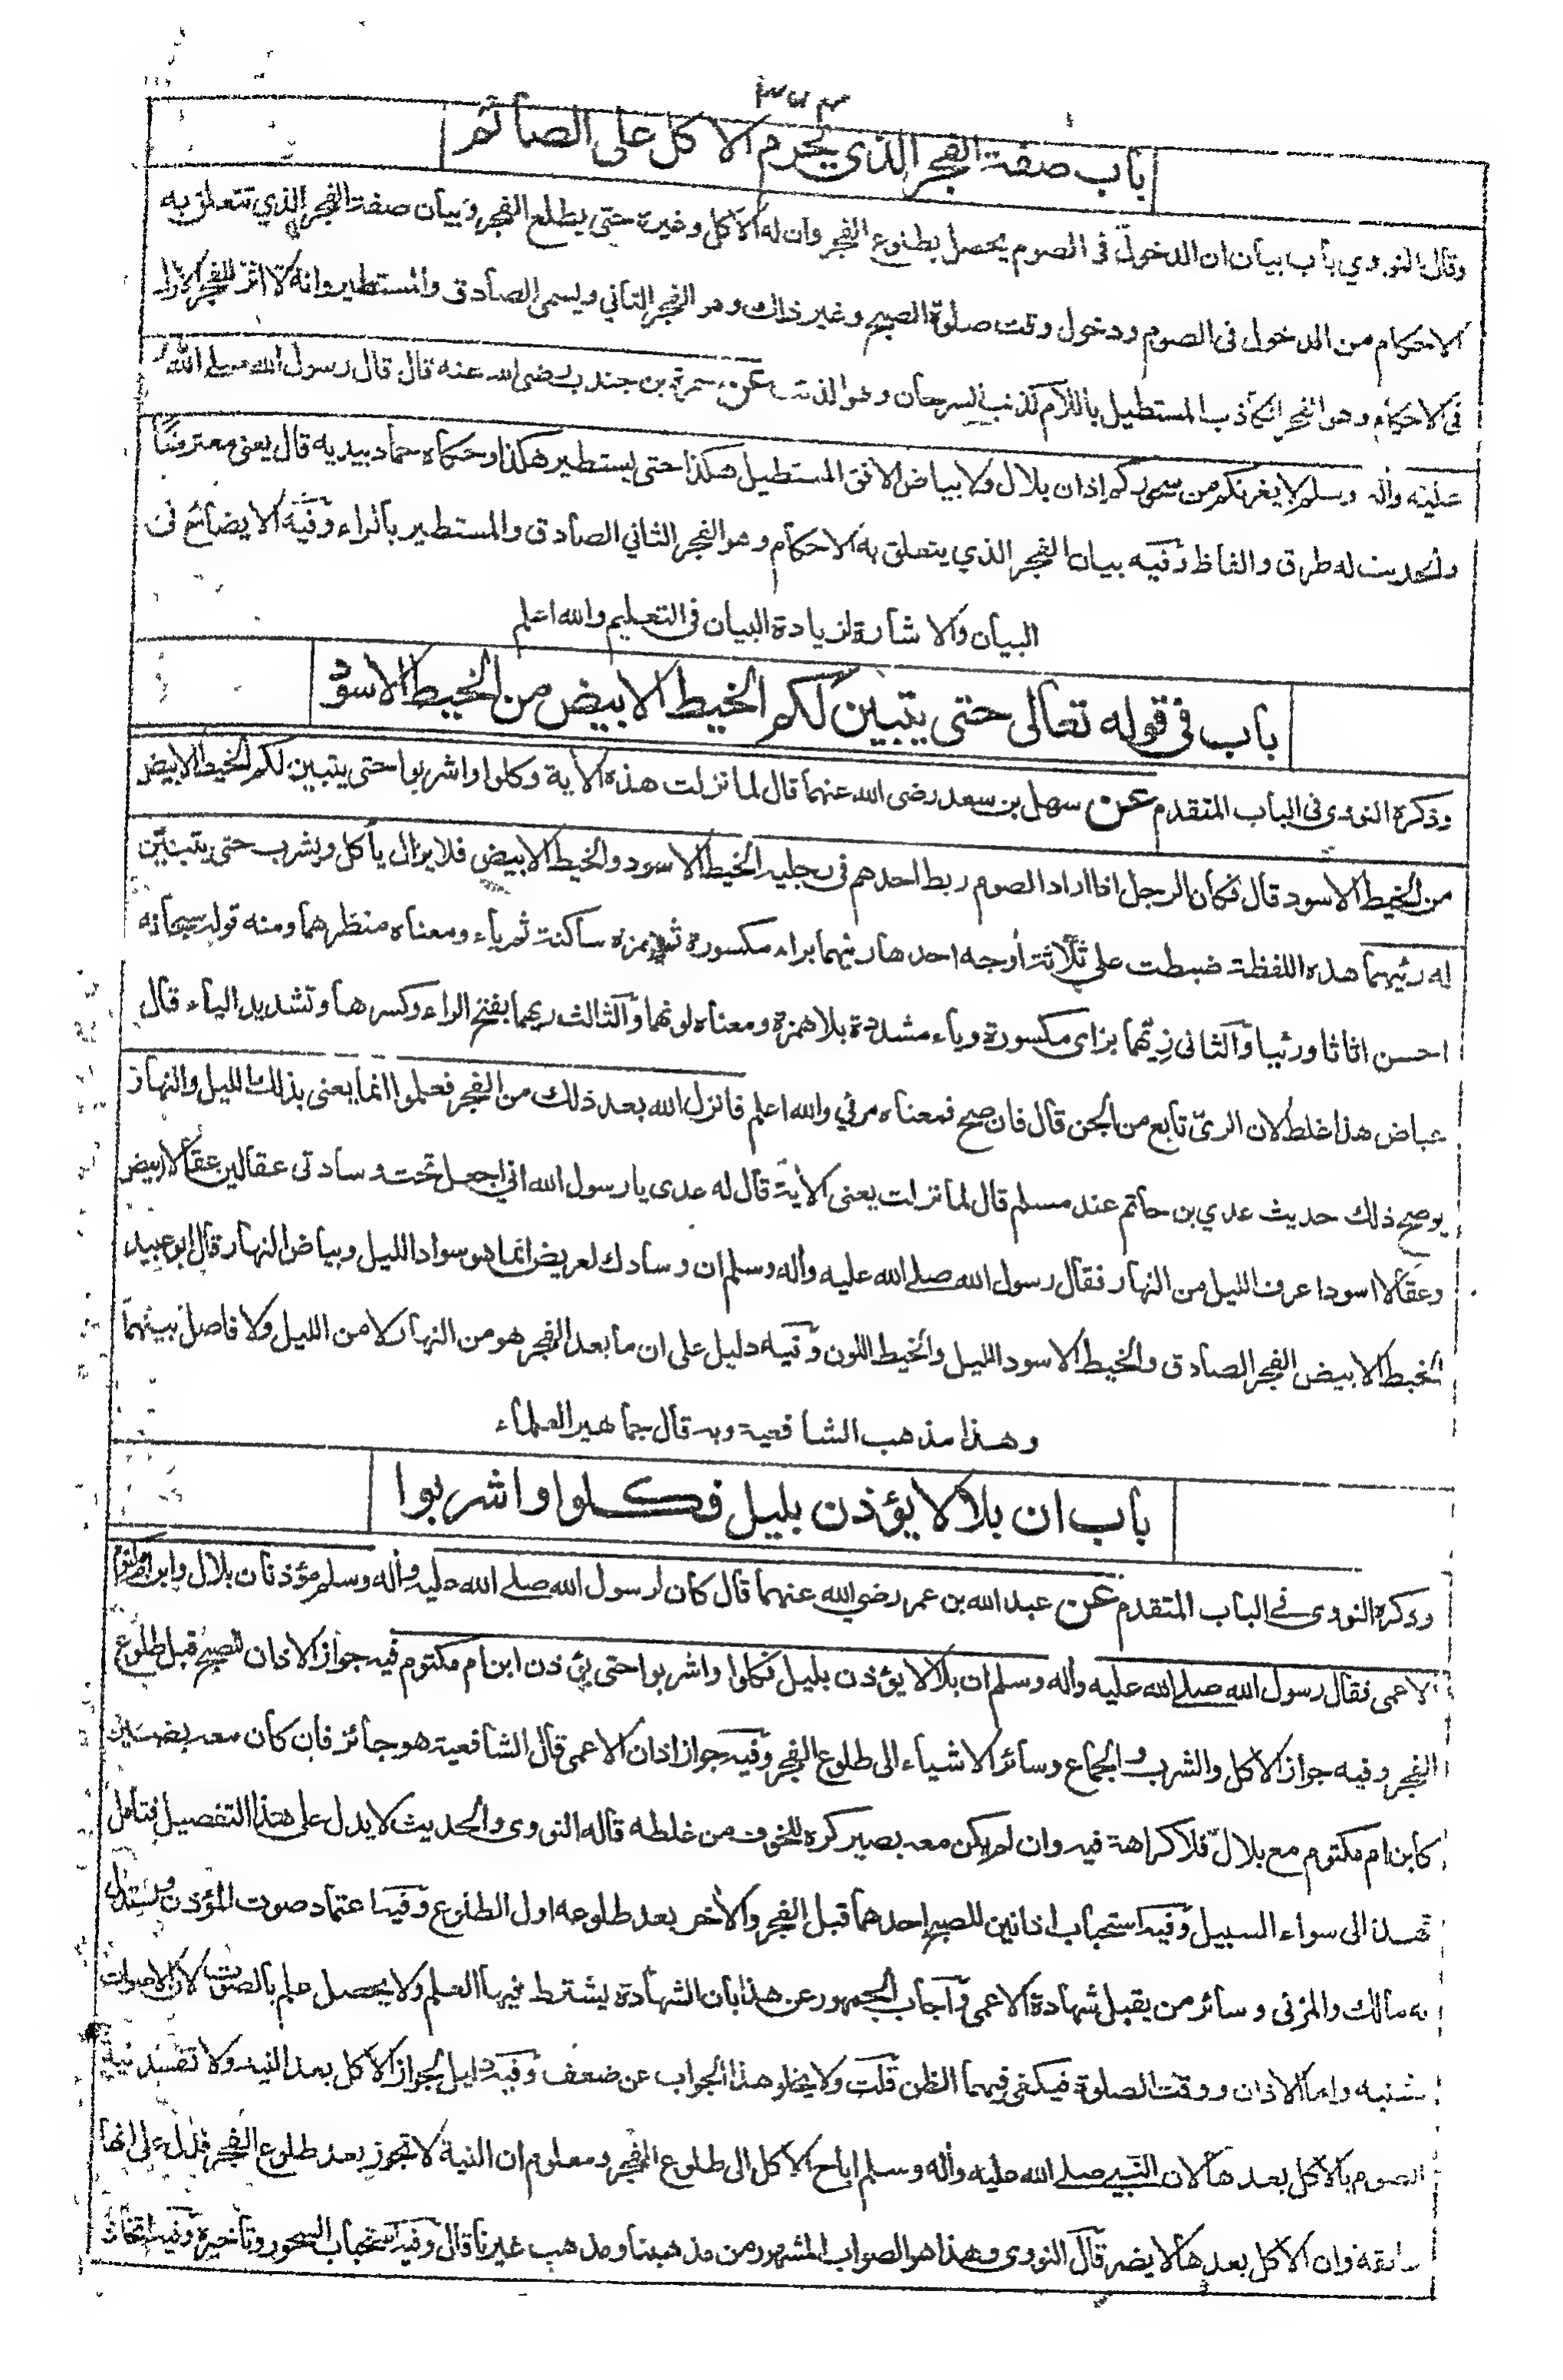 ٣٧٣
باب صفة الفجر الذي يحرم الاكل على الصائم
وقال النووي باب بيان ان الدخول في الصوم يحصل بطلوع الفجر وان له الاكل وغيره حتى يطلع الفجر وبيان صفة الفجر الذي تتعلق به
الاحكام من الدخول في الصوم ودخول وقت صلوة الصبح وغير ذلك وهو الفجر الثاني ويسمى الصادق والمستطير وانه لا اثر للفجر الاول
في الاحكام وهو الفجر الكاذب المستطيل باللام كذنب السرحان وهو الذئب عن سمرة بن جندب رضي الله عنه قال قال رسول الله صلى الله
عليه واله وسلم لا يغرنكم من سحوركم اذان بلال ولا بياض الافق المستطيل هكذا حتى يستطير هكذا وحكاه حماد بيديه قال يعني معترضا
والحديث له طرق والفاظ وفيه بيان الفجر الذي يتعلق به الاحكام وهو الفجر الثاني الصادق والمستطير بالراء وفيه الايضاح في
البيان والاشارة لزيادة البيان في التعليم والله اعلم
باب في قوله تعالى حتى يتبين لكم الخيط الابيض من الخيط الاسود
وذكره النووي في الباب المتقدم عن سهل بن سعد رضي الله عنهما قال لما نزلت هذه الاية وكلوا واشربوا حتى يتبين لكم الخيط الابيض
من الخيط الاسود قال فكان الرجل اذا اراد الصوم ربط احدهم في رجليه الخيط الاسود والخيط الابيض فلا يزال يأكل ويشرب حتى يتبين
له رئيهما هذه اللفظة ضبطت على ثلاثة أوجه احدها رئيهما براء مكسورة ثم همزة ساكنة ثم ياء ومعناه منظرهما ومنه قوله سبحانه
احسن اثاثا ورئيا والثاني زيهما بزاى مكسورة وياء مشددة بلا همزة ومعناه لونهما والثالث ريهما بفتح الراء وكسرها وتشديد الياء قال
عياض هذا غلط لان الري تابع من الجن قال فان صح فمعناه مرئي والله اعلم فانزل الله بعد ذلك من الفجر فعلموا انما يعني بذلك الليل والنهار
يوضح ذلك حديث عدي بن حاتم عند مسلم قال لما نزلت يعنى الاية قال له عدى يا رسول الله اني اجعل تحت وسادتى عقالين عقالا ابيض
وعقالا اسود اعرف الليل من النهار فقال رسول الله صلى الله عليه واله وسلم ان وسادك لعريض انما هو سواد الليل وبياض النهار قال ابو عبيد
الخيط الابيض الفجر الصادق والخيط الاسود الليل والخيط اللون وفيه دليل على ان ما بعد الفجر هو من النهار لا من الليل ولا فاصل بينهما
وهذا مذهب الشافعية وبه قال جماهير العلماء
باب ان بلالا يؤذن بليل فكلوا واشربوا
وذكره النووى في الباب المتقدم عن عبد الله بن عمر رضي الله عنهما قال كان لرسول الله صلى الله عليه واله وسلم مؤذنان بلال وابن ام مكتوم
الاعمى فقال رسول الله صلى الله عليه واله وسلم ان بلالا يؤذن بليل فكلوا واشربوا حتى يؤذن ابن ام مكتوم فيه جواز الاذان للصبح قبل طلوع
الفجر وفيه جواز الاكل والشرب والجماع وسائر الاشياء الى طلوع الفجر وفيه جواز اذان الاعمى قال الشافعية هو جائز فان كان معه بصير
كابن ام مكتوم مع بلال فلا كراهة فيه وان لم يكن معه بصير كره للخوف من غلطه قاله النووى والحديث لا يدل على هذا التفصيل فتأمل
تهد الى سواء السبيل وفيه استحباب اذانين للصبح احدهما قبل الفجر والاخر بعد طلوعه اول الطلوع وفيه اعتماد صوت المؤذن واستدل
به مالك والمزنى وسائر من يقبل شهادة الاعمى وأجاب الجمهور عن هذا بأن الشهادة يشترط فيها العلم ولا يحصل علم بالصوت لان الاصوات
تشتبه واما الاذان ووقت الصلوة فيكفى فيهما الظن قلت ولا يخلو هذا الجواب عن ضعف وفيه دليل لجواز الاكل بعد النية ولا تفسد نية
الصوم بالاكل بعدها لان النبي صلى الله عليه واله وسلم اباح الاكل الى طلوع الفجر ومعلوم ان النية لا تجوز بعد طلوع الفجر فدل على انها
سابقة وان الاكل بعدها لا يضر قال النووى وهذا هو الصواب المشهور من مذهبنا ومذهب غيرنا قال وفيه استحباب السحور وتأخيره وفيه اتخاذ